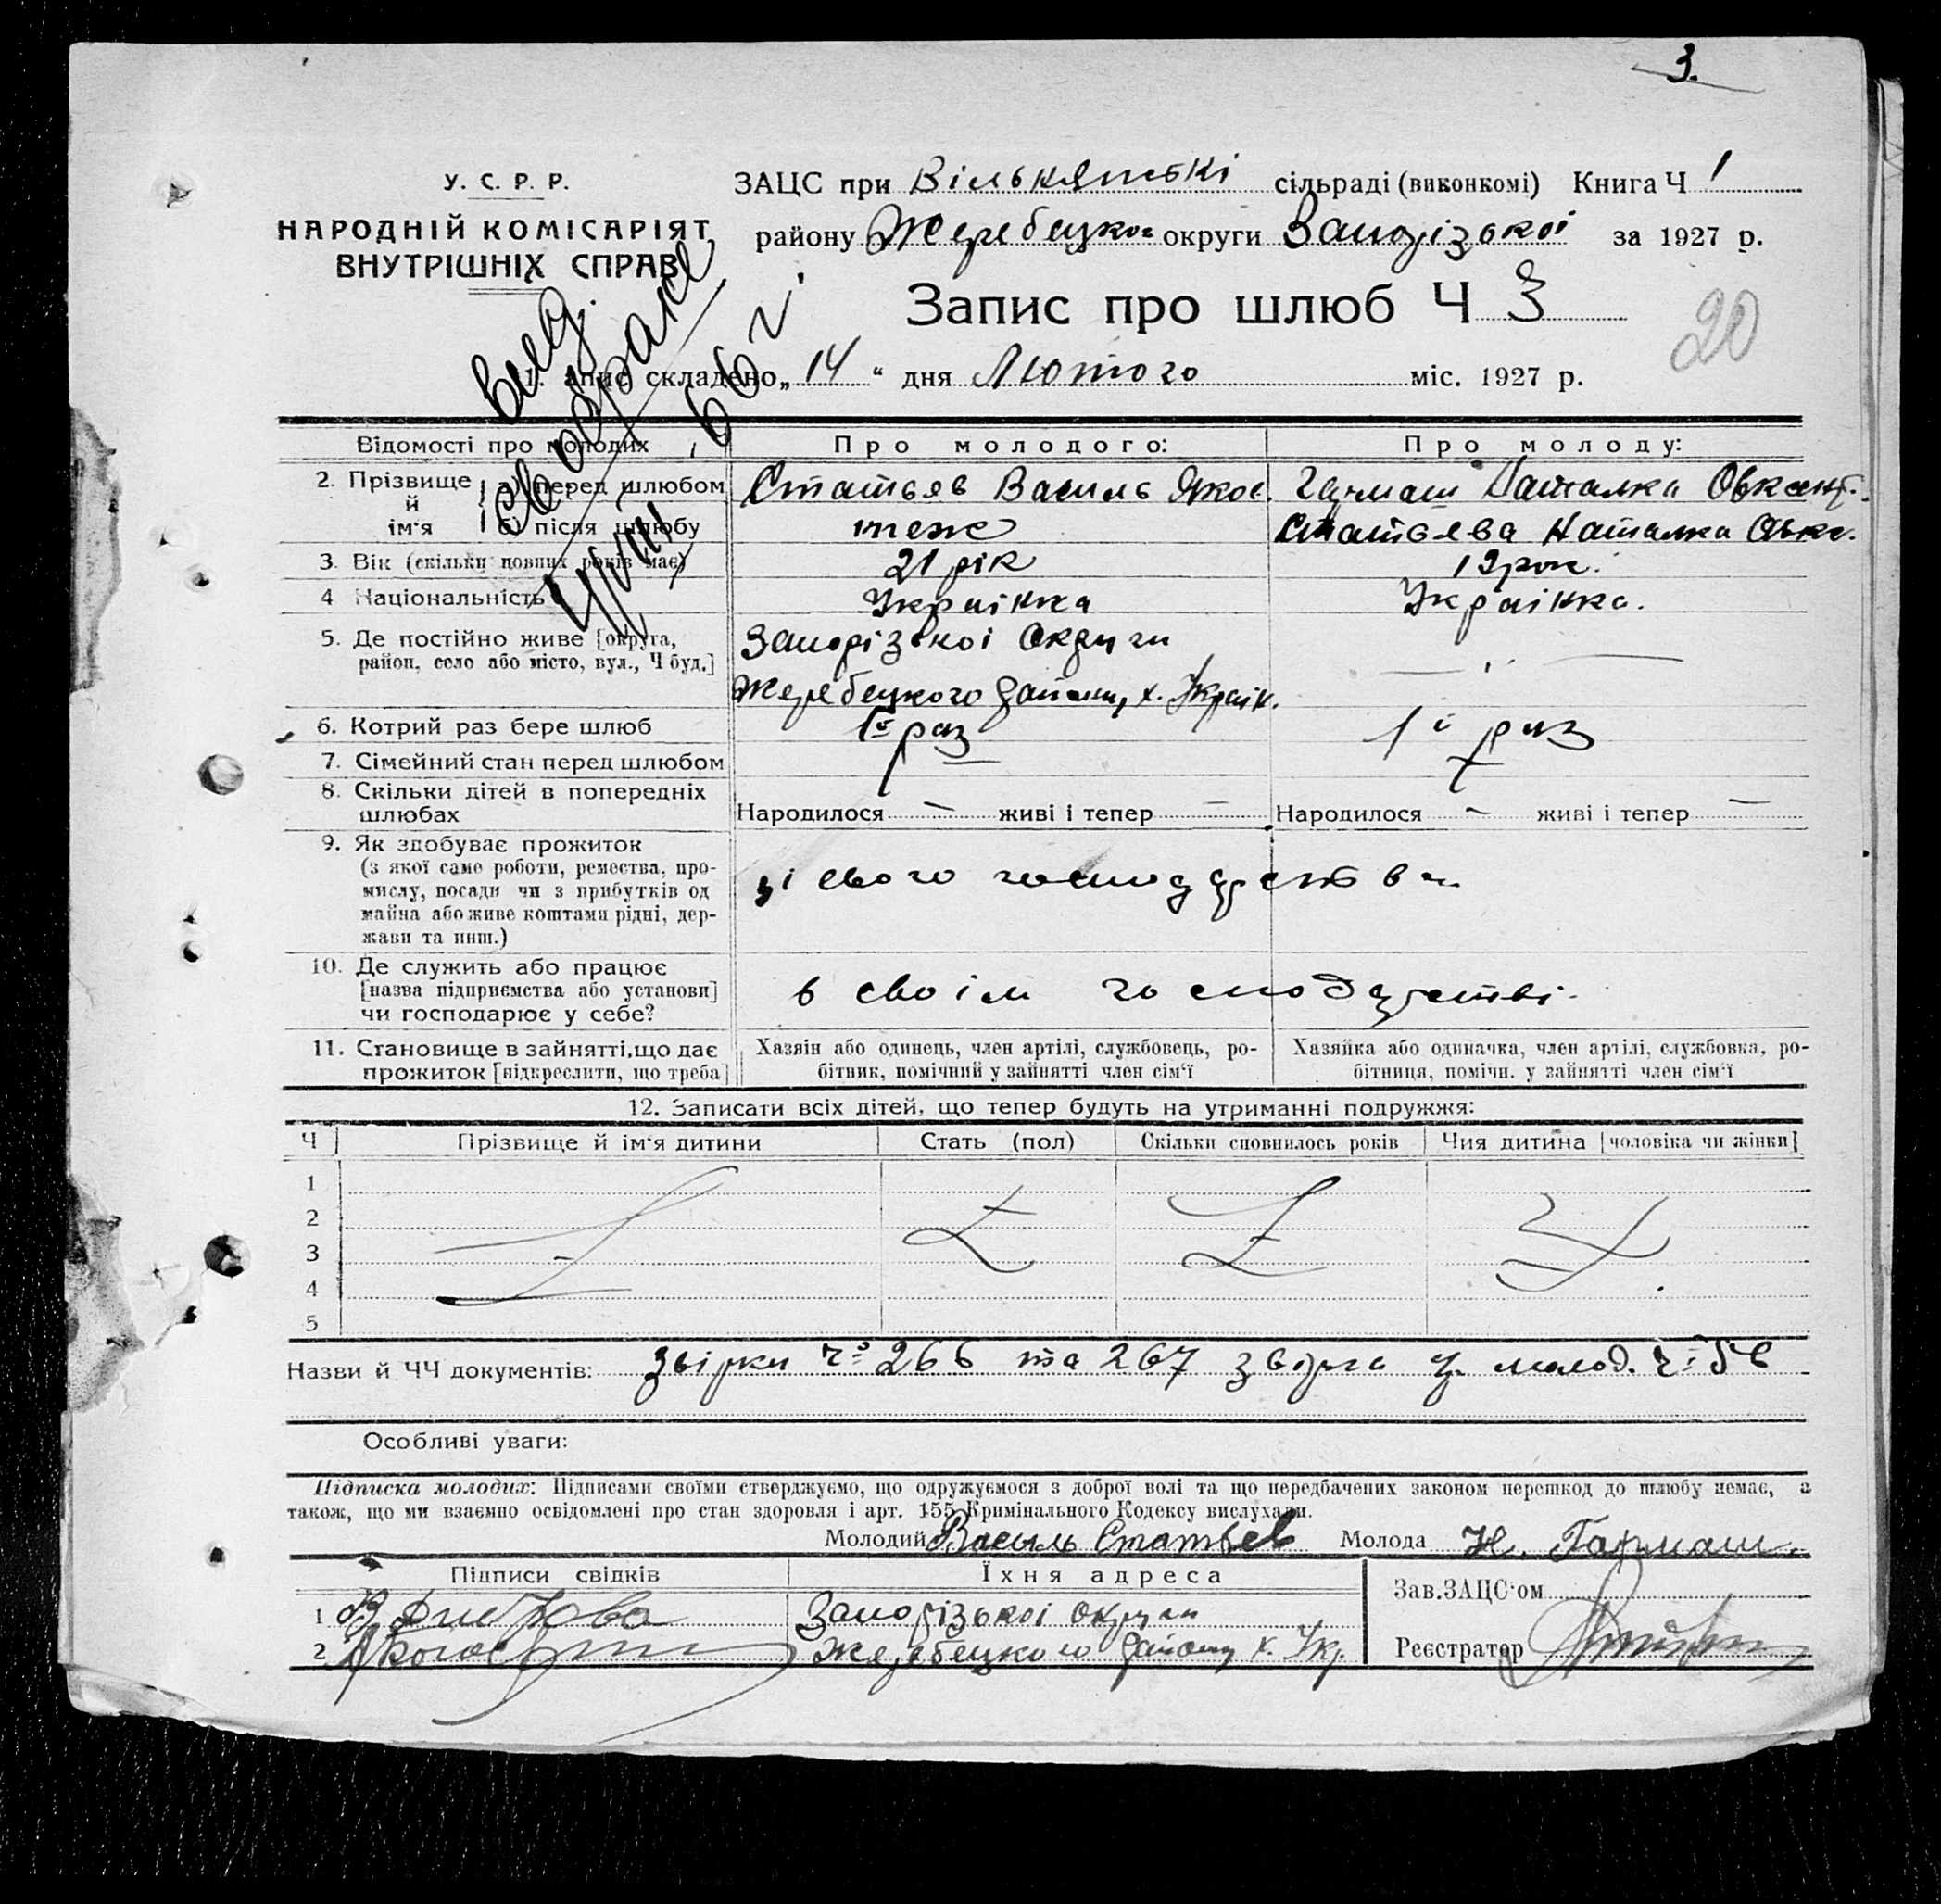 3.
У. С. Р. Р.
НАРОДНІЙ КОМІСАРІЯТ
ВНУТРІШНІХ СПРАВ
ЗАЦС при сільраді (виконкомі) Книга Ч 1
району Жеребецкої округи Запорізької за 1927 р.
Запис про шлюб Ч 3
20
1. Запис складено „ 14 “ дня Лютого міс. 1927 р.
66 г.
Відомості про молодих
Про молодого:
Про молоду:
2. Прізвище й ім‘я
а) перед шлюбом
Статьєв Василь Яков.
Гармаш Наталка Овксент.
б) після шлюбу
теж
Статьєва Наталка Овкс.
3. Вік (скільки повних років має)
21 рік
19 рок.
4 Національність
Українка
Українка.
5. Де постійно живе [округа,
район, село або місто, вул., Ч буд.]
Запорізької Округи
Жеребецкого району, х. Україн.
— " —
6. Котрий раз бере шлюб
1й раз
1й раз
7. Сімейний стан перед шлюбом
8. Скільки дітей в попередніх
шлюбах
Народилося — живі і тепер —
Народилося — живі і тепер —
9. Як здобуває прожиток
(з якої саме роботи, ремества, про-
мислу, посади чи з прибутків од
майна або живе коштами рідні, дер-
жави та инш.)
зі свого господарства
10. Де служить або працює
[назва підприємства або установи]
чи господарює у себе?
в своїм господарстві.
11. Становище в зайнятті, що дає
прожиток [підкреслити, що треба]
Хазяїн або одинець, член артілі, службовець, ро-
бітник, помічний у зайнятті член сім‘ї
Хазяйка або одиначка, член артілі, службовка, ро-
бітниця, помічн. у зайнятті член сім‘ї
12. Записати всіх дітей, що тепер будуть на утриманні подружжя:
Ч
Прізвище й ім‘я дитини
Стать (пол)
Скільки сповнилось років
Чия дитина [чоловіка чи жінки]
1
2
3
4
5
Назви й ЧЧ документів: звірки 266 та 267
Особливі уваги:
Підписка молодих: Підписами своїми стверджуємо, що одружуємося з доброї волі та що передбачених законом перешкод до шлюбу немає, а
також, що ми взаємно освідомлені про стан здоровля і арт. 155 Кримінального Кодексу вислухали.
Молодий Василь Статьєв Молода Н. Гармаш.
Підписи свідків
Їхня адреса
1
Запорізької округи
2
Жеребецкого району х. Укр.
Зав. ЗАЦС‘ом
Реєстратор